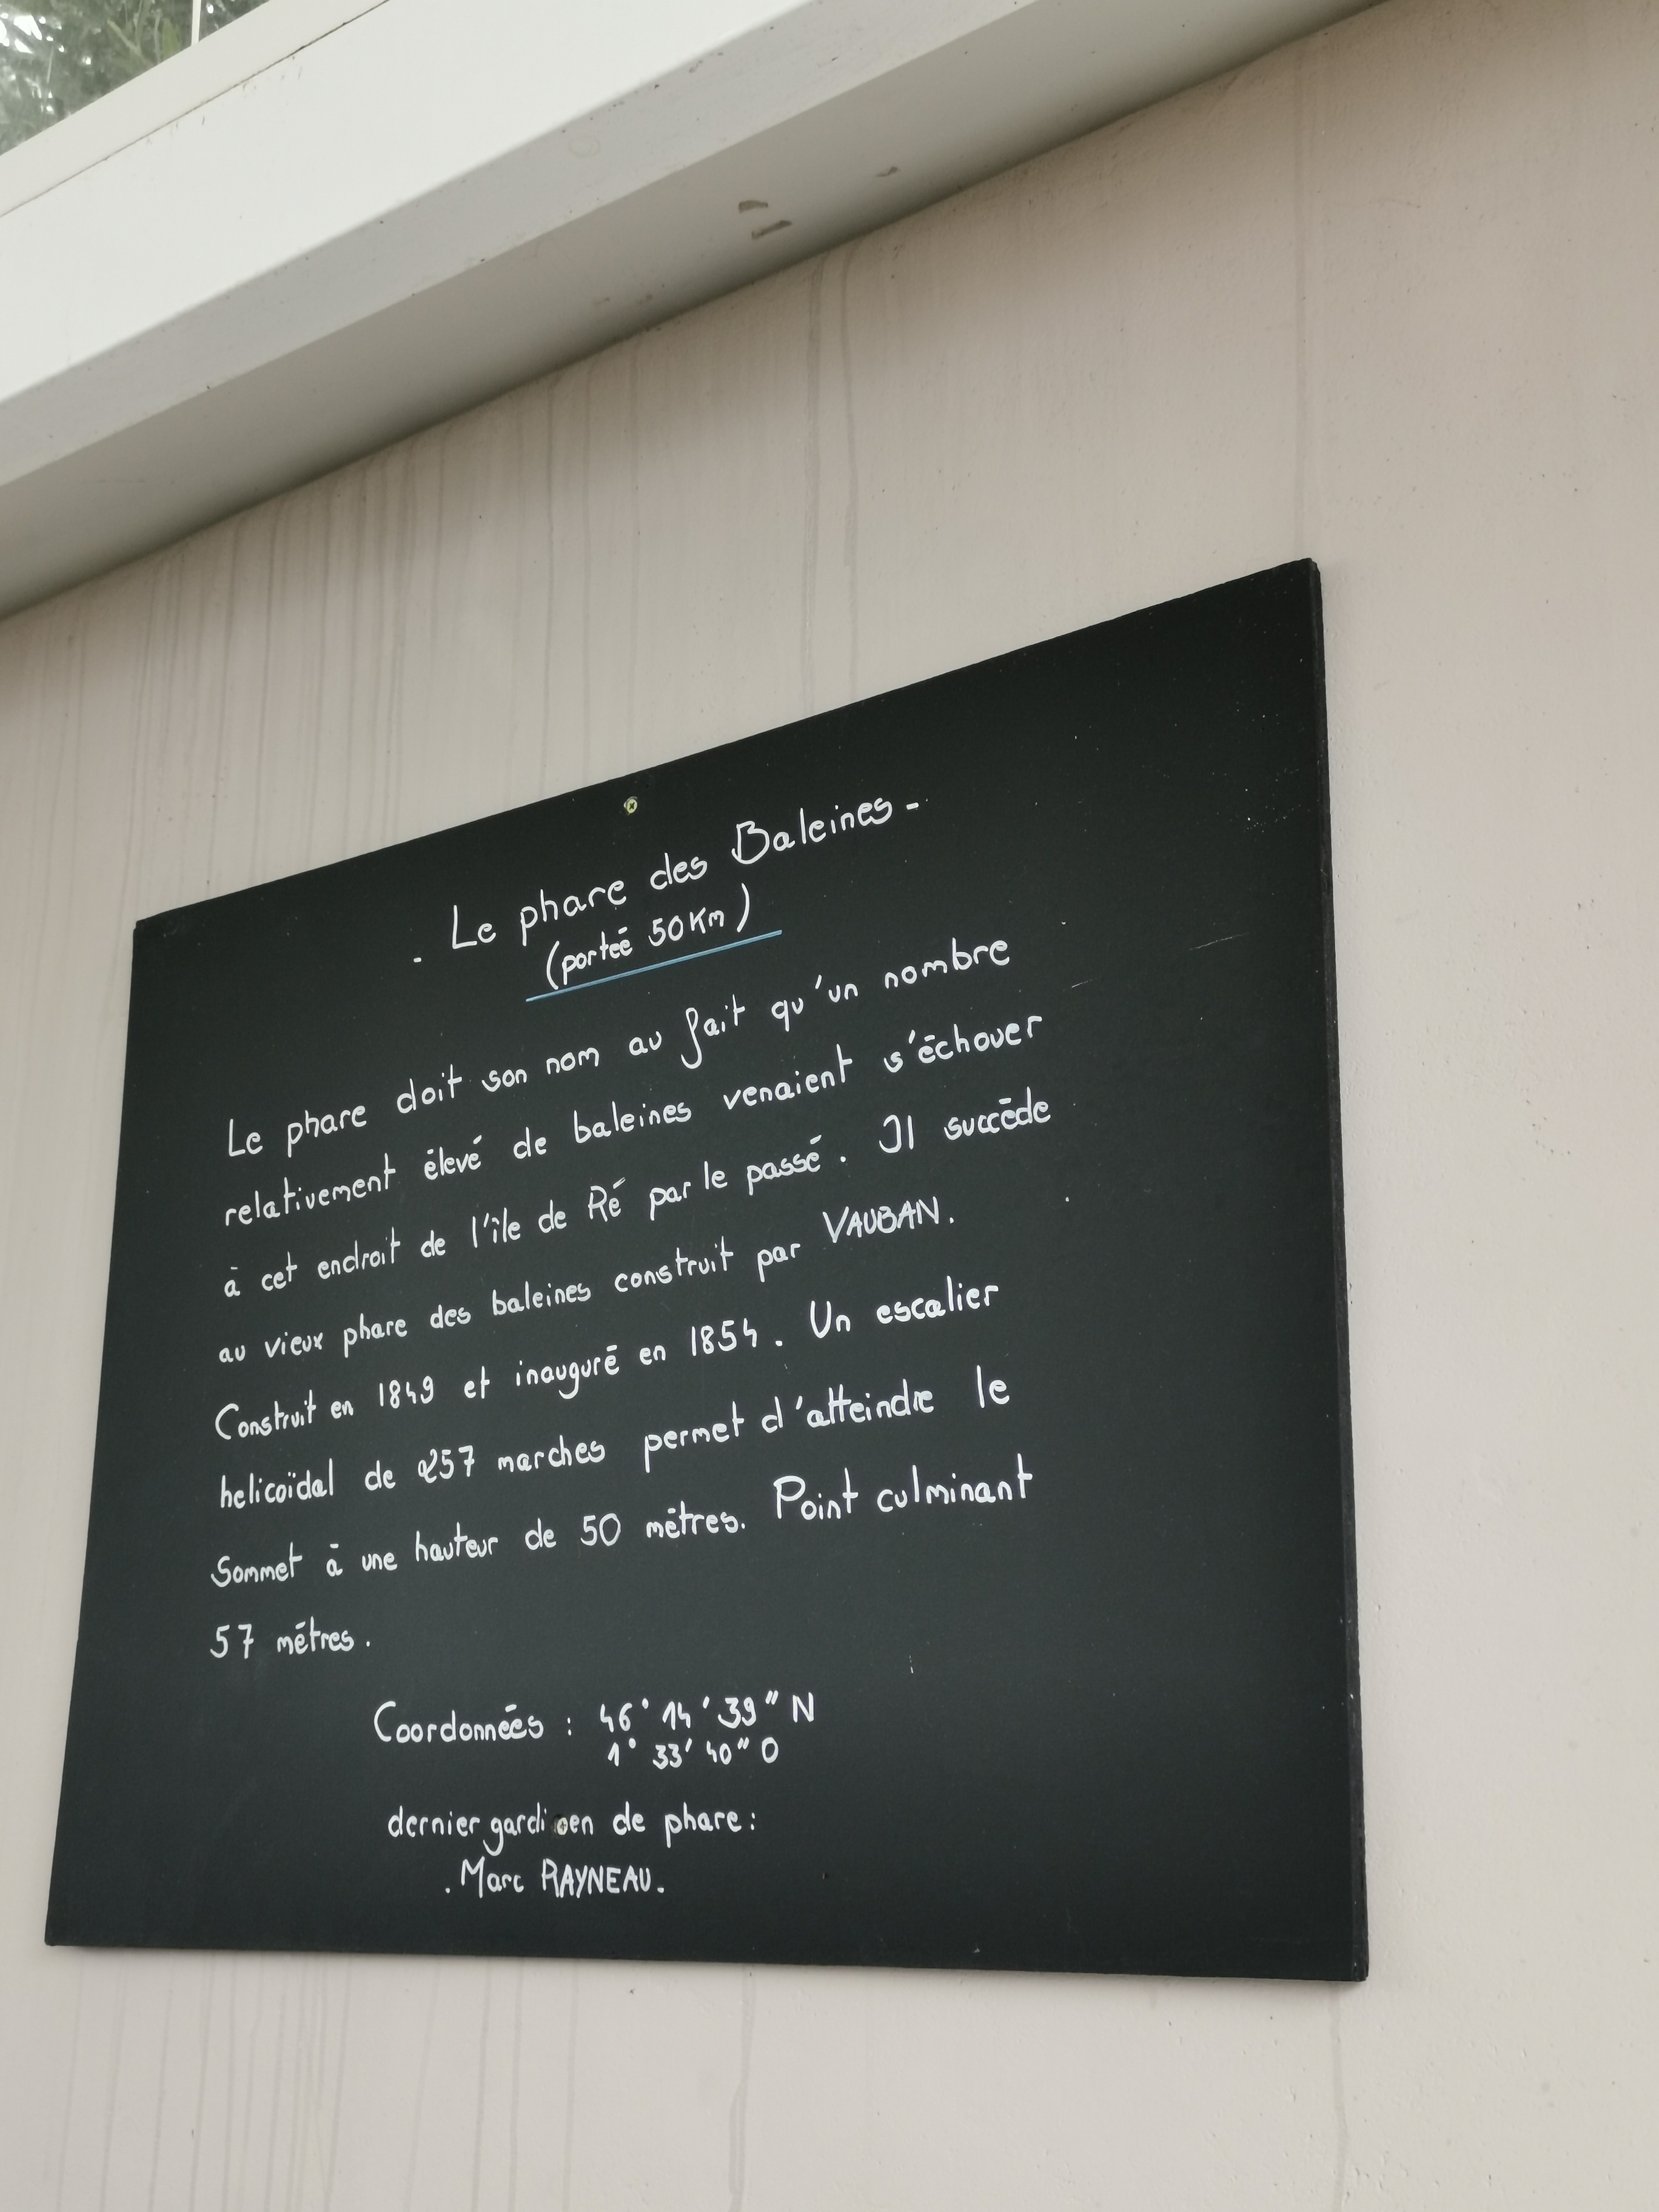 . Le phare des Baleines -
(porteé 50Km)
Le phare doit son nom au fait qu'un nombre
relativement élevé de baleines venaient s'échouer
à cet endroit de l'île de Ré par le passé. Il succède
au vieux phare des baleines construit par VAUBAN.
Construit en 1849 et inauguré en 1854. Un escalier
helicoïdal de 257 marches permet d'atteindre le
Sommet à une hauteur de 50 mètres. Point culminant
57 mètres.
Coordonnées : 46° 14' 39" N
1° 33' 40" O
dernier gardien de phare:
. Marc RAYNEAU.